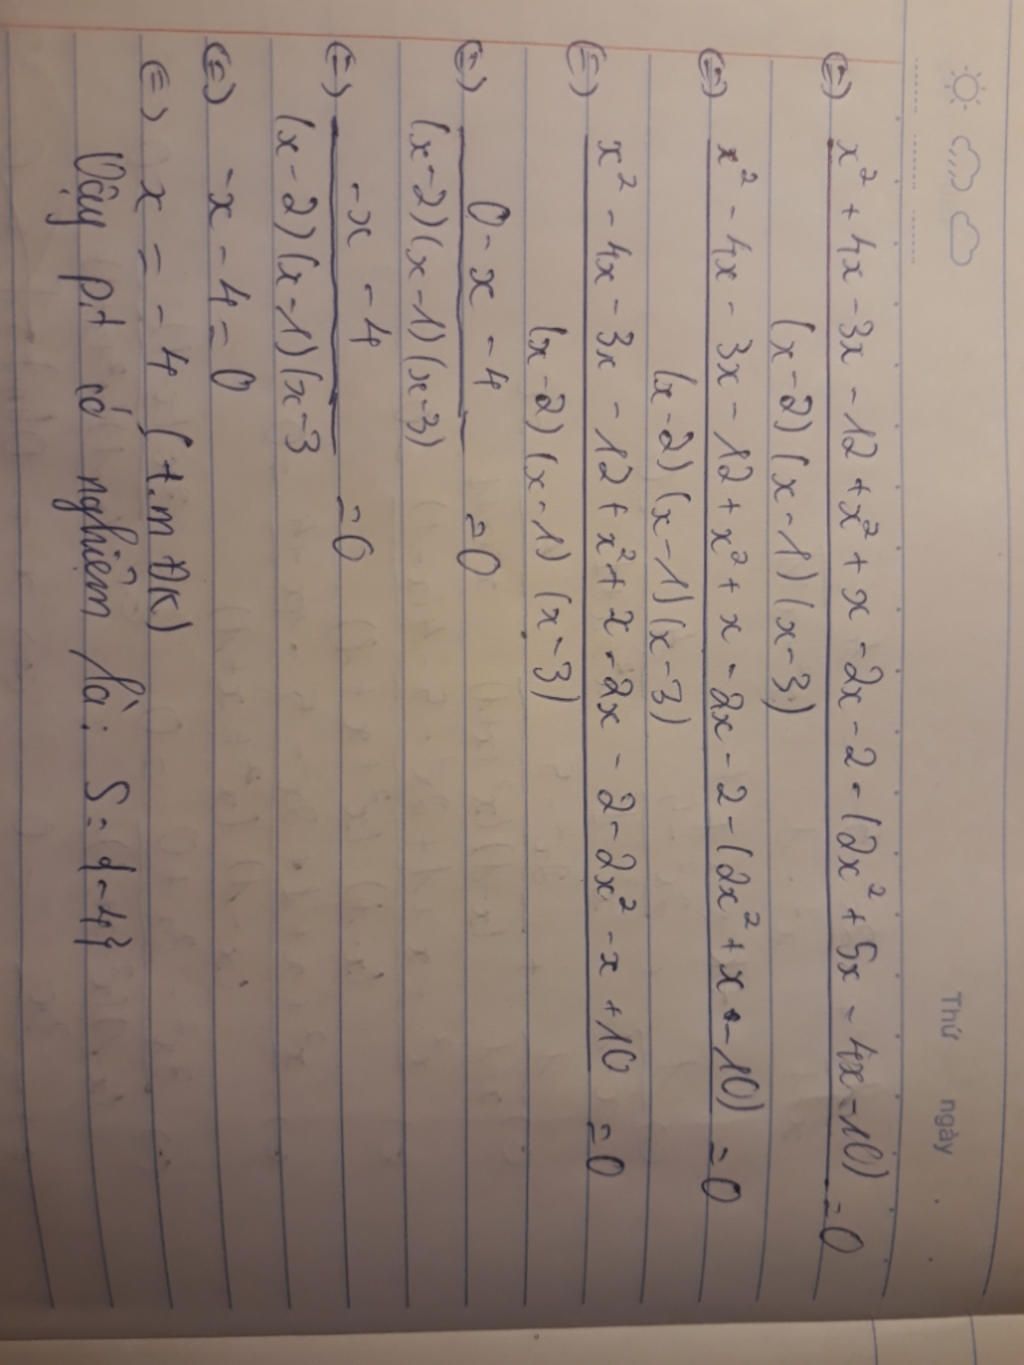 Thứ ngày
(=) x² + 4x - 3x - 12 + x² + x - 2x - 2 - (2x² + 5x - 4x - 10) = 0
(x - 2) (x - 1) (x - 3)
(=) x² - 4x - 3x - 12 + x² + x - 2x - 2 - (2x² + x - 10) = 0
(x - 2) (x - 1) (x - 3)
(=) x² - 4x - 3x - 12 + x² + x - 2x - 2 - 2x² - x + 10 = 0
(x - 2) (x - 1) (x - 3)
(=) 0 - x - 4 = 0
(x - 2) (x - 1) (x - 3)
(=) -x - 4 = 0
(x - 2) (x - 1) (x - 3
(=) -x - 4 = 0
(=) x = -4 (t.m ĐK)
Vậy p.t có nghiệm là: S = {-4}